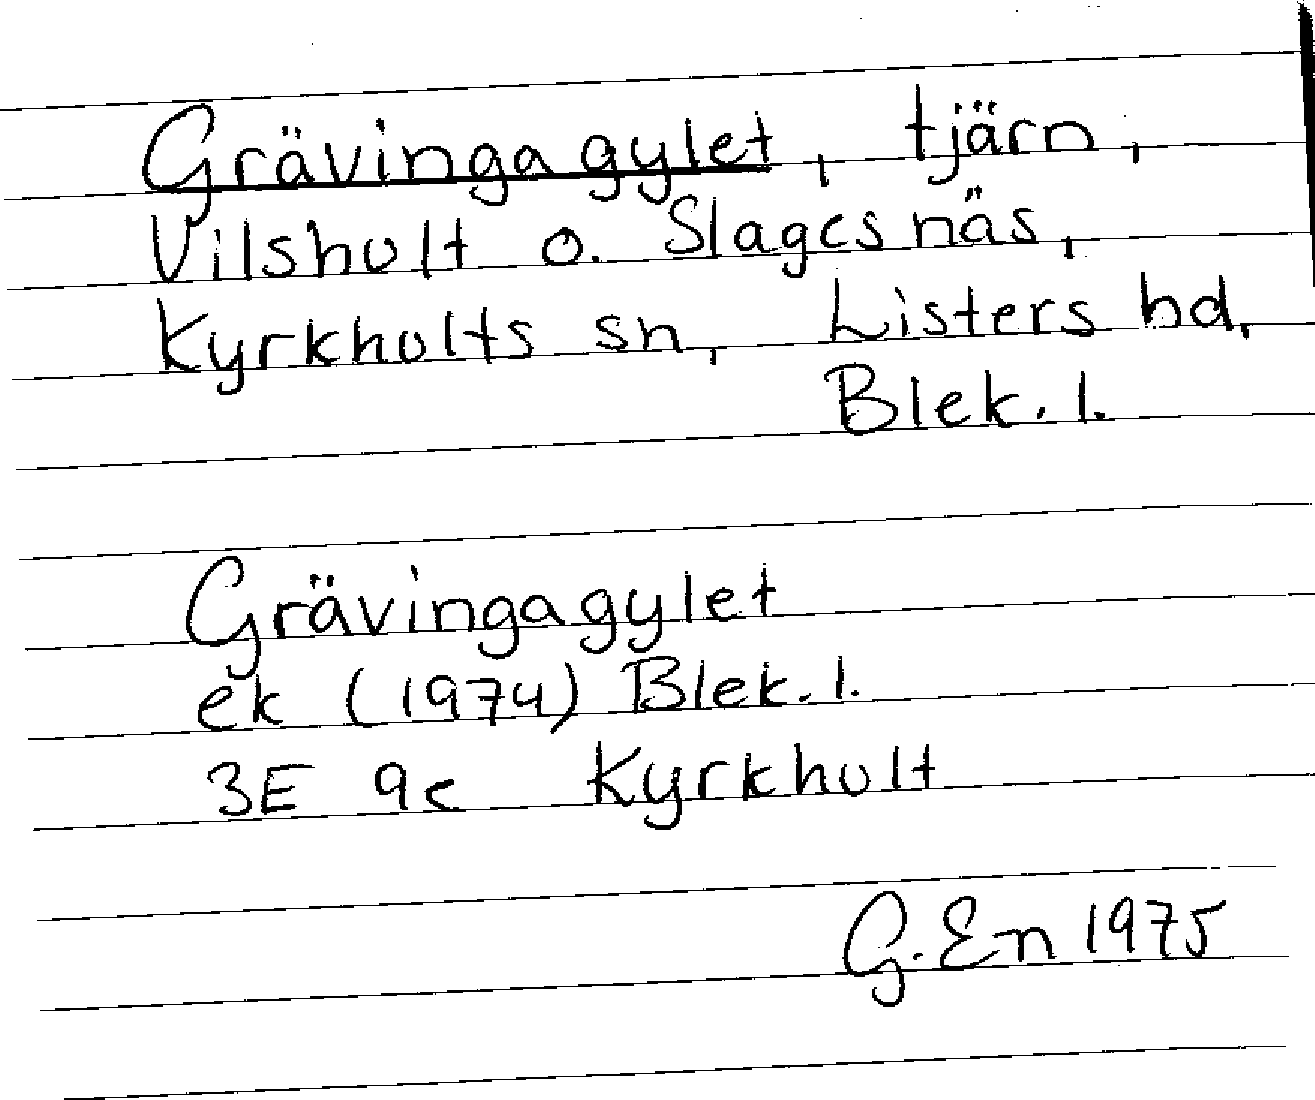 Grävingagylet, tjärn,
Vilshult o. Slagesnäs,
Kyrkhults sn, Listers hd,
Blek. l.
Grävingagylet
ek (1974) Blek. l.
3E 9c Kyrkhult
G. En 1975